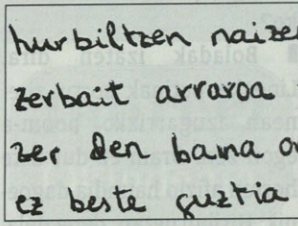 hurbiltzen naize
zerbait arraroa
zer den baina
ez beste guztia